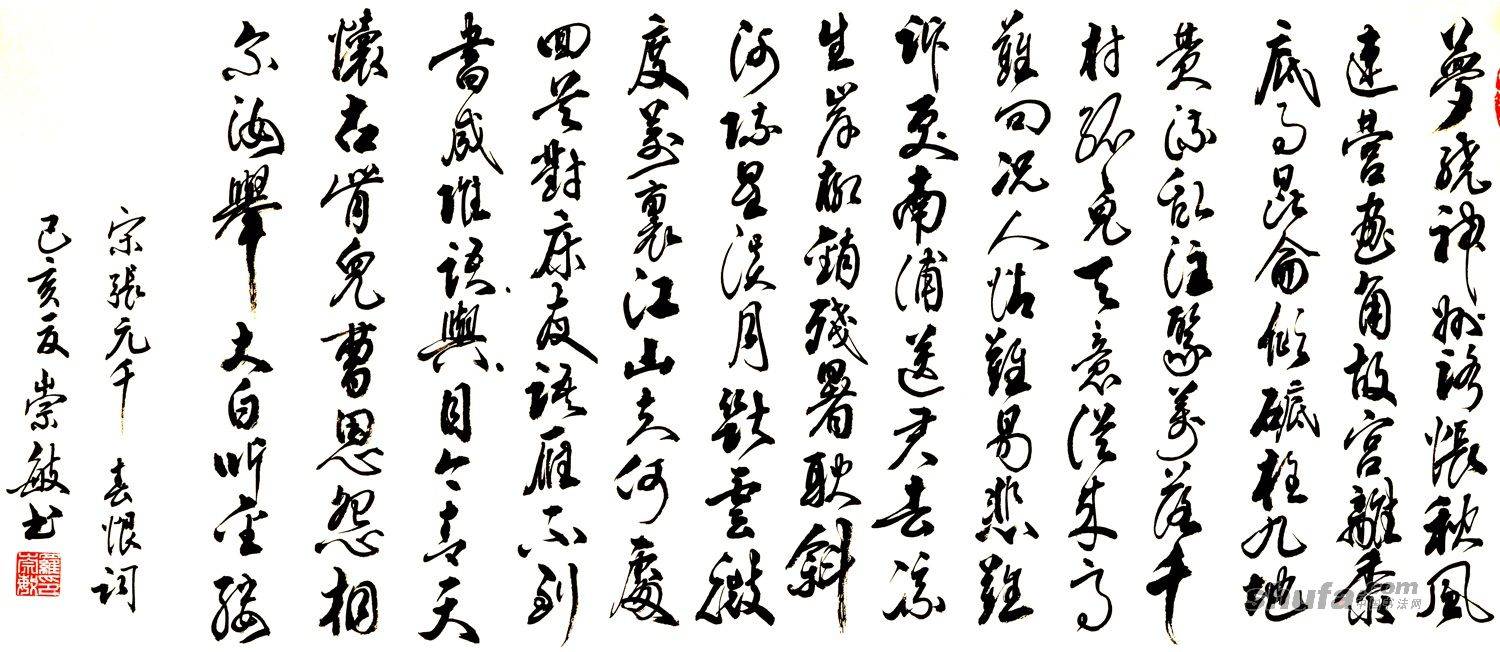 夢繞神州路悵秋風
連營畫角故宮離黍
底事昆侖傾砥柱九地
黄流乱注聚萬落千
村孤兔天意從來高
難问況人情難易悲難
訴更南浦送君去凉
生岸柳銷殘暑耿斜
河疏星淡月斷雲微
度萬裏江山知何處
回首對床夜語雁不到
書成誰語與目盡青天
懷古肯兒曹恩怨相
尔汝舉大白听金縷
宋張元干 春恨詞
己亥夏 崇敏书
shufa.com
中国书法网